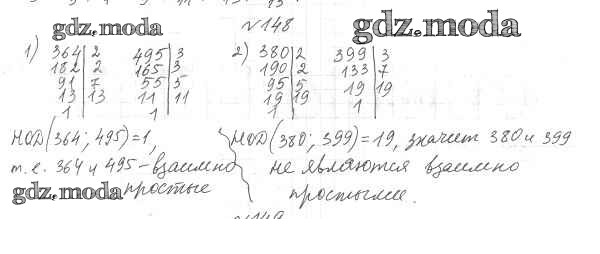 №148
gdz.moda
gdz.moda
1) 364|2 495|3 2) 380|2 399|3
182|2 165|3 190|2 133|7
91|7 55|5 95|5 19|19
13|13 11|11 19|19 1
1 1 1
НОД(364; 495)=1,
т.е. 364 и 495 - взаимно
простые
gdz.moda
НОД(380; 399)=19, значит 380 и 399
не являются взаимно
простыми.
№149